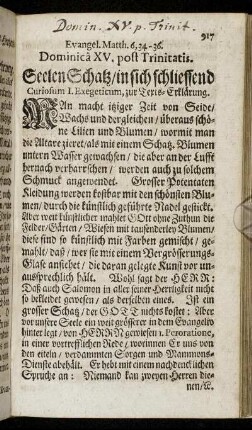 Domin. XV. p. Trinit.
917
Evangel. Matth. 6, 24-36.
Dominicâ XV. post Trinitatis.
Seelen Schatz / in sich schliessend
Curiosum I. Exegeticum, zur Texts-Erklärung.
MAn macht itziger Zeit von Seide /
Wachs und dergleichen / überaus schö-
ne Lilien und Blumen / wormit man
die Altare zieret / als mit einem Schatz. Blumen
untern Wasser gewachsen / die aber an der Lufft
hernach verharrschen / werden auch zu solchem
Schmuck angewendet. Grosser Potentaten
Kleidung worden kostbar mit den schönsten Blu-
men / durch die künstlich geführte Nadel gestickt.
Aber weit künstlicher mahlet GOtt ohne Zuthun die
Felder / Gärten / Wiesen mit tausenderley Blumen /
diese sind so künstlich mit Farben gemischt / ge-
mahlt / daß / wer sie mit einem Vergrösserungs-
Glase ansiehet / die daran gelegte Kunst vor un-
aussprechlich hält. Wohl sagt der HERR:
Daß auch Salomon in aller seiner Herrligkeit nicht
so bekleidet gewesen / als derselben eines. Ist ein
grosser Schatz / der GOTT nichts kostet: Aber
vor unsere Seele ein weit grösserer in dem Evangelio
hinter legt / von HERRN gewiesen 1. Peroratione,
in einer vortrefflichen Rede / worinnen Er uns von
den eiteln / verdammten Sorgen und Mammons-
Dienste abehält. Er hebt mit einem nachdencklichen
Spruche an: Niemand kan zweyen Herren die-
nen / &c.